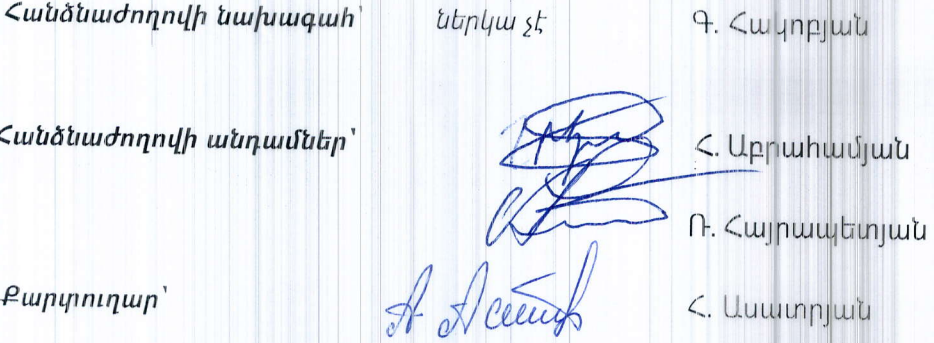 Հանձնաժողովի նախագահ՝ ներկա չէ Գ. Հակոբյան
Հանձնաժողովի անդամներ՝ Հ. Աբրահամյան
Ռ. Հայրապետյան
Քարտուղար՝ Հ. Ասատրյան